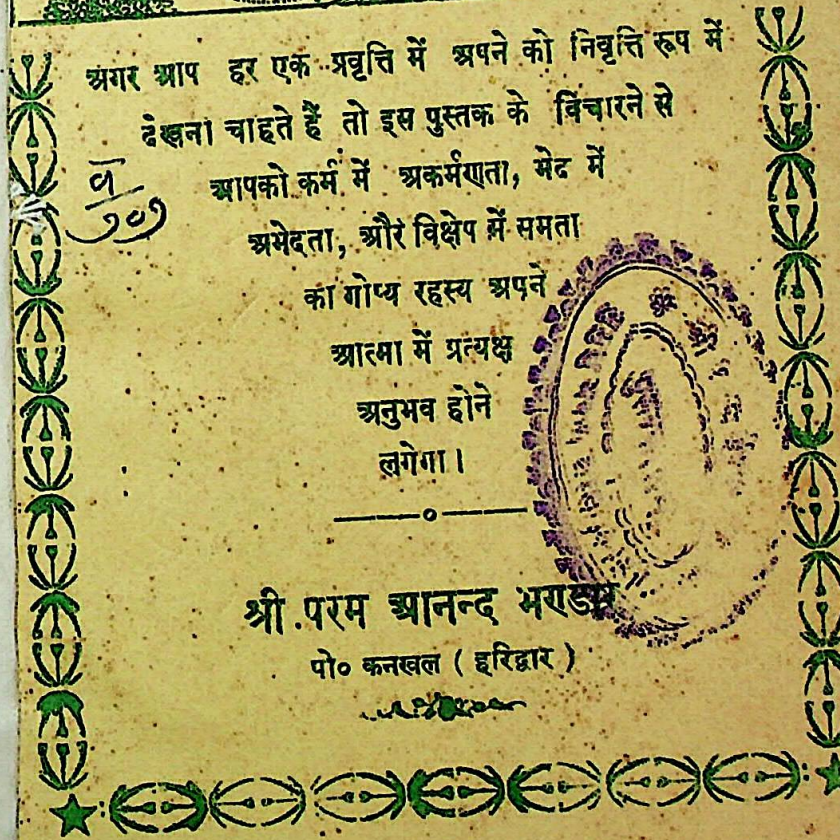 अगर आप हर एक प्रवृत्ति में अपने को निवृत्ति रूप में
देखना चाहते हैं तो इस पुस्तक के विचारने से
आपको कर्म में अकर्मणता, भेद में
अभेदता, और विक्षेप में समता
का गोप्य रहस्य अपने
आत्मा में प्रत्यक्ष
अनुभव होने
लगेगा।
व
१०१
श्री परम आनन्द भण्डार
पो० कनखल ( हरिद्वार )